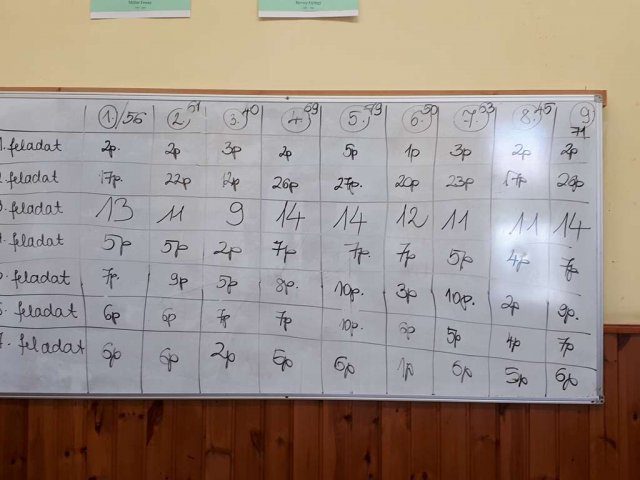 1./56 2. 61 3. 40 4. 69 5. 79 6. 50 7. 63 8. 45 9 71
. feladat 2p. 2p 3p 2p 5p 1p 3p 2p 2p
. feladat 17p. 22p 12p 26p 27p. 20p 23p 17p 26p
. feladat 13 11 9 14 14 12 11 11 14
. feladat 5p 5p 2p 7p 7p. 7p 5p 4p 7p
. feladat 7p. 9p 5p 8p. 10p. 3p 10p. 2p 9p.
. feladat 6p 6p 7p 7p 10p. 6p 5p 4p 7p
. feladat 6p 6p 2p 5p 6p 1p 6p 5p 6p